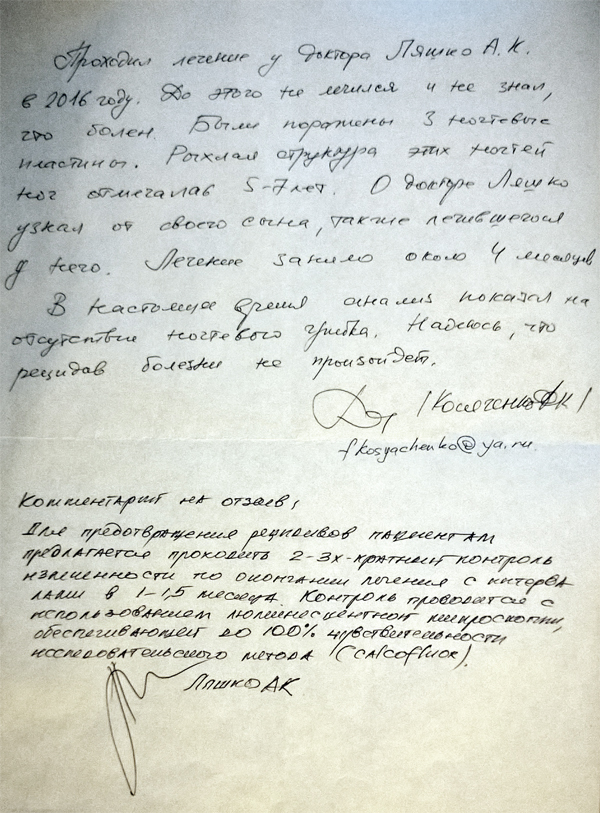 Проходил лечение у доктора Ляшко А.К.
в 2016 году. До этого не лечился и не знал,
что болен. Были поражены 3 ногтевые
пластины. Рыхлая структура этих ногтей
ног отмечалась 5-7 лет. О докторе Ляшко
узнал от своего сына, также лечившегося
у него. Лечение заняло около 4 месяцев
В настоящее время анализ показал на
отсутствие ногтевого грибка. Надеюсь, что
рецидив болезни не произойдет.
/Косяченко ФК/
fkosyachenko@ya.ru.
Комментарий на отзыв:
Для предотвращения рецидивов пациентам
предлагается проходить 2-3х-кратный контроль
излеченности по окончании лечения с интерва
лами в 1-1,5 месяца. Контроль проводится с
использованием люминесцентной микроскопии,
обеспечивающей до 100% чувствительности
исследовательского метода (Calcofluor).
Ляшко АК